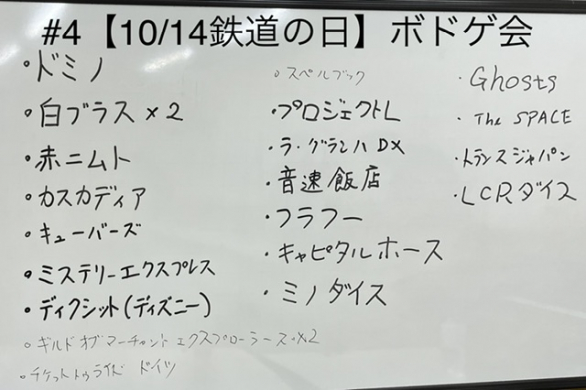 #4【10/14鉄道の日】ボドゲ会
・ドミノ
・白ブラス×2
・赤ニムト
・カスカディア
・キューバーズ
・ミステリーエクスプレス
・ディクシット(ディズニー)
・ギルドオブマーチャントエクスプローラーズ×2
・チケットトゥライド ドイツ
・スペルブック
・プロジェクトL
・ラ・グランハDX
・音速飯店
・フラフー
・キャピタルホース
・ミノダイス
・Ghosts
・The SPACE
・トランスジャパン
・LCRダイス